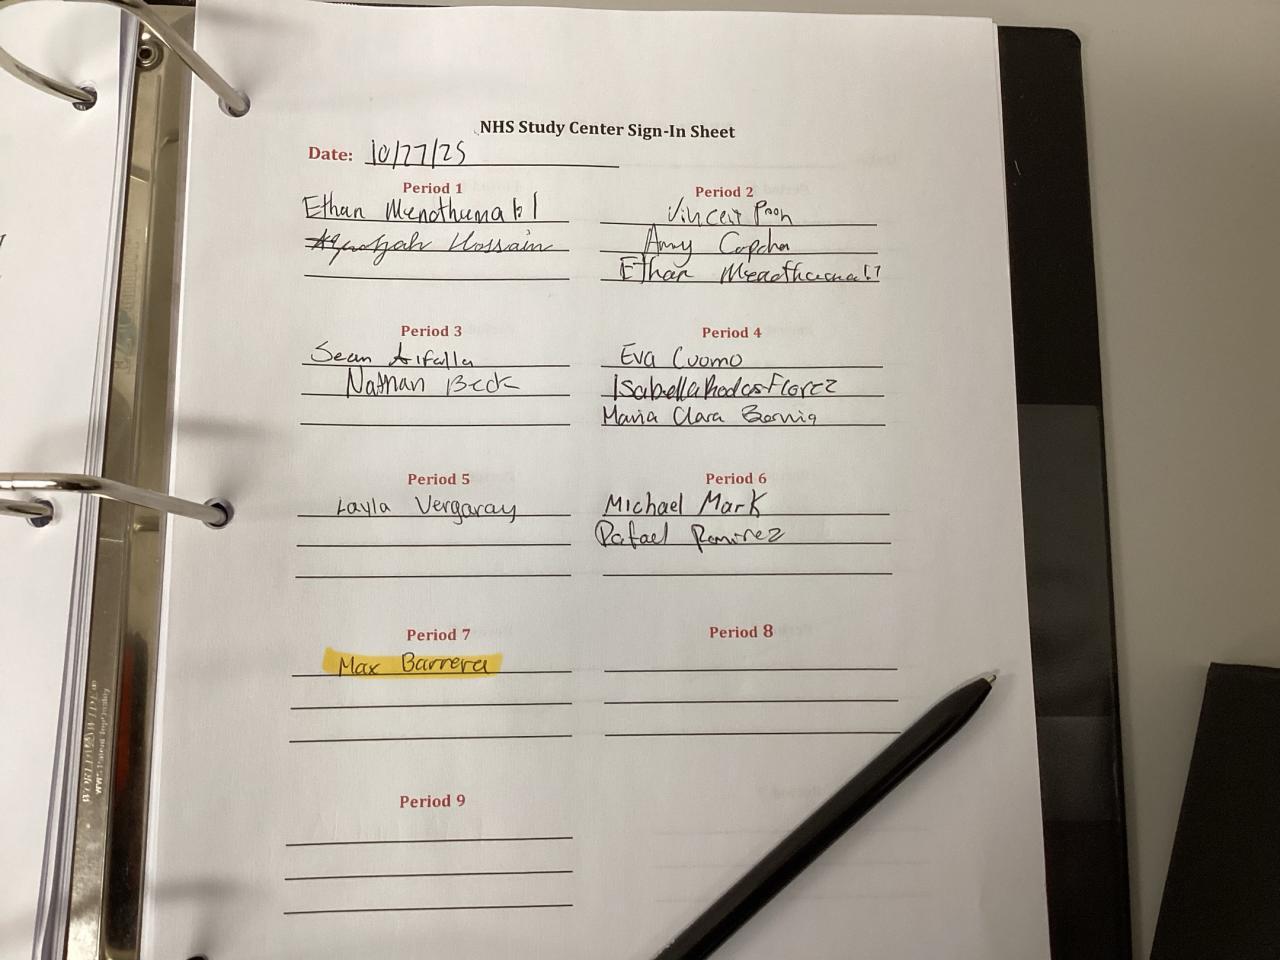 NHS Study Center Sign-In Sheet
Date: 10/27/25
Period 1
Ethan
Hossain
Period 2
Vincent Poon
Amy Copcha
Ethan
Period 3
Sean
Nathan Beck
Period 4
Eva Cuomo
Isabella Rodas-Florez
Maria Clara
Period 5
Layla Vergaray
Period 6
Michael Mark
Rafael Ramirez
Period 7
Max Barrera
Period 8
Period 9
WORLDWIDE